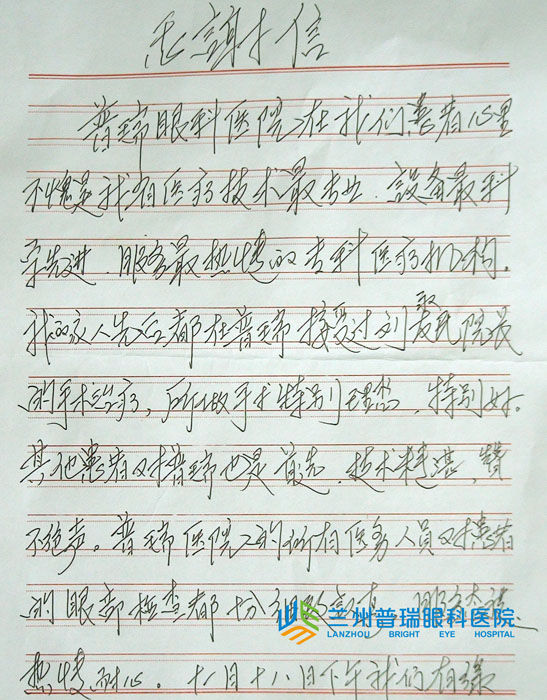 感谢信
普瑞眼科医院在我们患者心里
不愧是我省医疗技术最专业、设备最科
学先进、服务最热情的专科医疗机构。
我的家人先后都在普瑞接受过刘敬民院长
的手术治疗，所做手术特别理想，特别好。
其他患者对普瑞也是首选，技术精湛，赞
不绝声。普瑞医院的所有医务人员对患者
的眼部检查都十分细致 服务态
热情、耐心。十一月十八日下午我们有
兰州普瑞眼科医院
LANZHOU BRIGHT EYE HOSPITAL